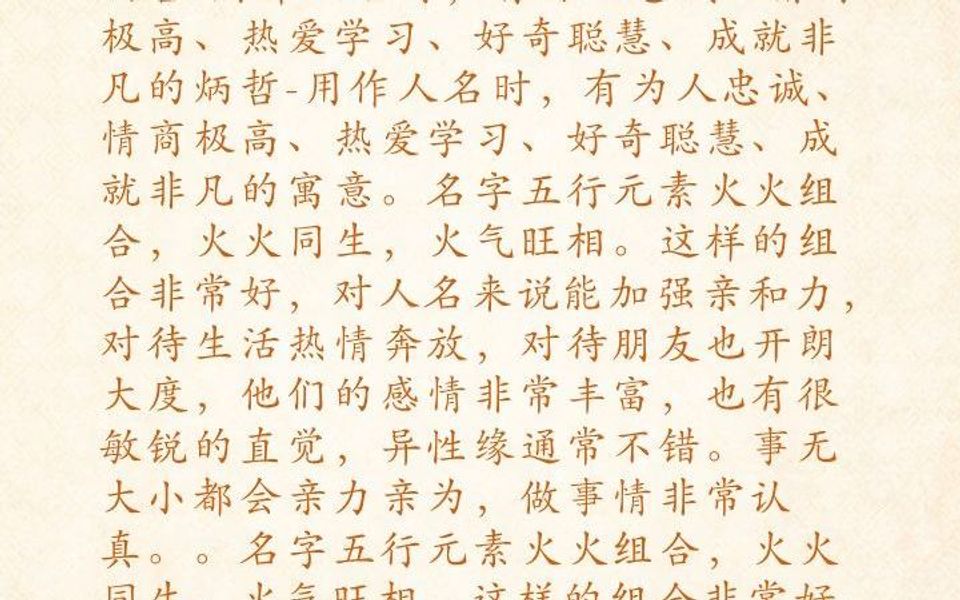 极高、热爱学习、好奇聪慧、成就非
凡的炳哲-用作人名时，有为人忠诚、
情商极高、热爱学习、好奇聪慧、成
就非凡的寓意。名字五行元素火火组
合，火火同生，火气旺相。这样的组
合非常好，对人名来说能加强亲和力，
对待生活热情奔放，对待朋友也开朗
大度，他们的感情非常丰富，也有很
敏锐的直觉，异性缘通常不错。事无
大小都会亲力亲为，做事情非常认
真。。名字五行元素火火组合，火火
同生，火气旺相。这样的组合非常好